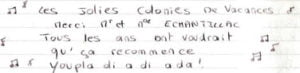 Les Jolies Colonies De Vacances
Merci Mr et Mme ECHANTILLAC
Tous les ans ont voudrait
qu'ça recommence
Youpla di a di ada!